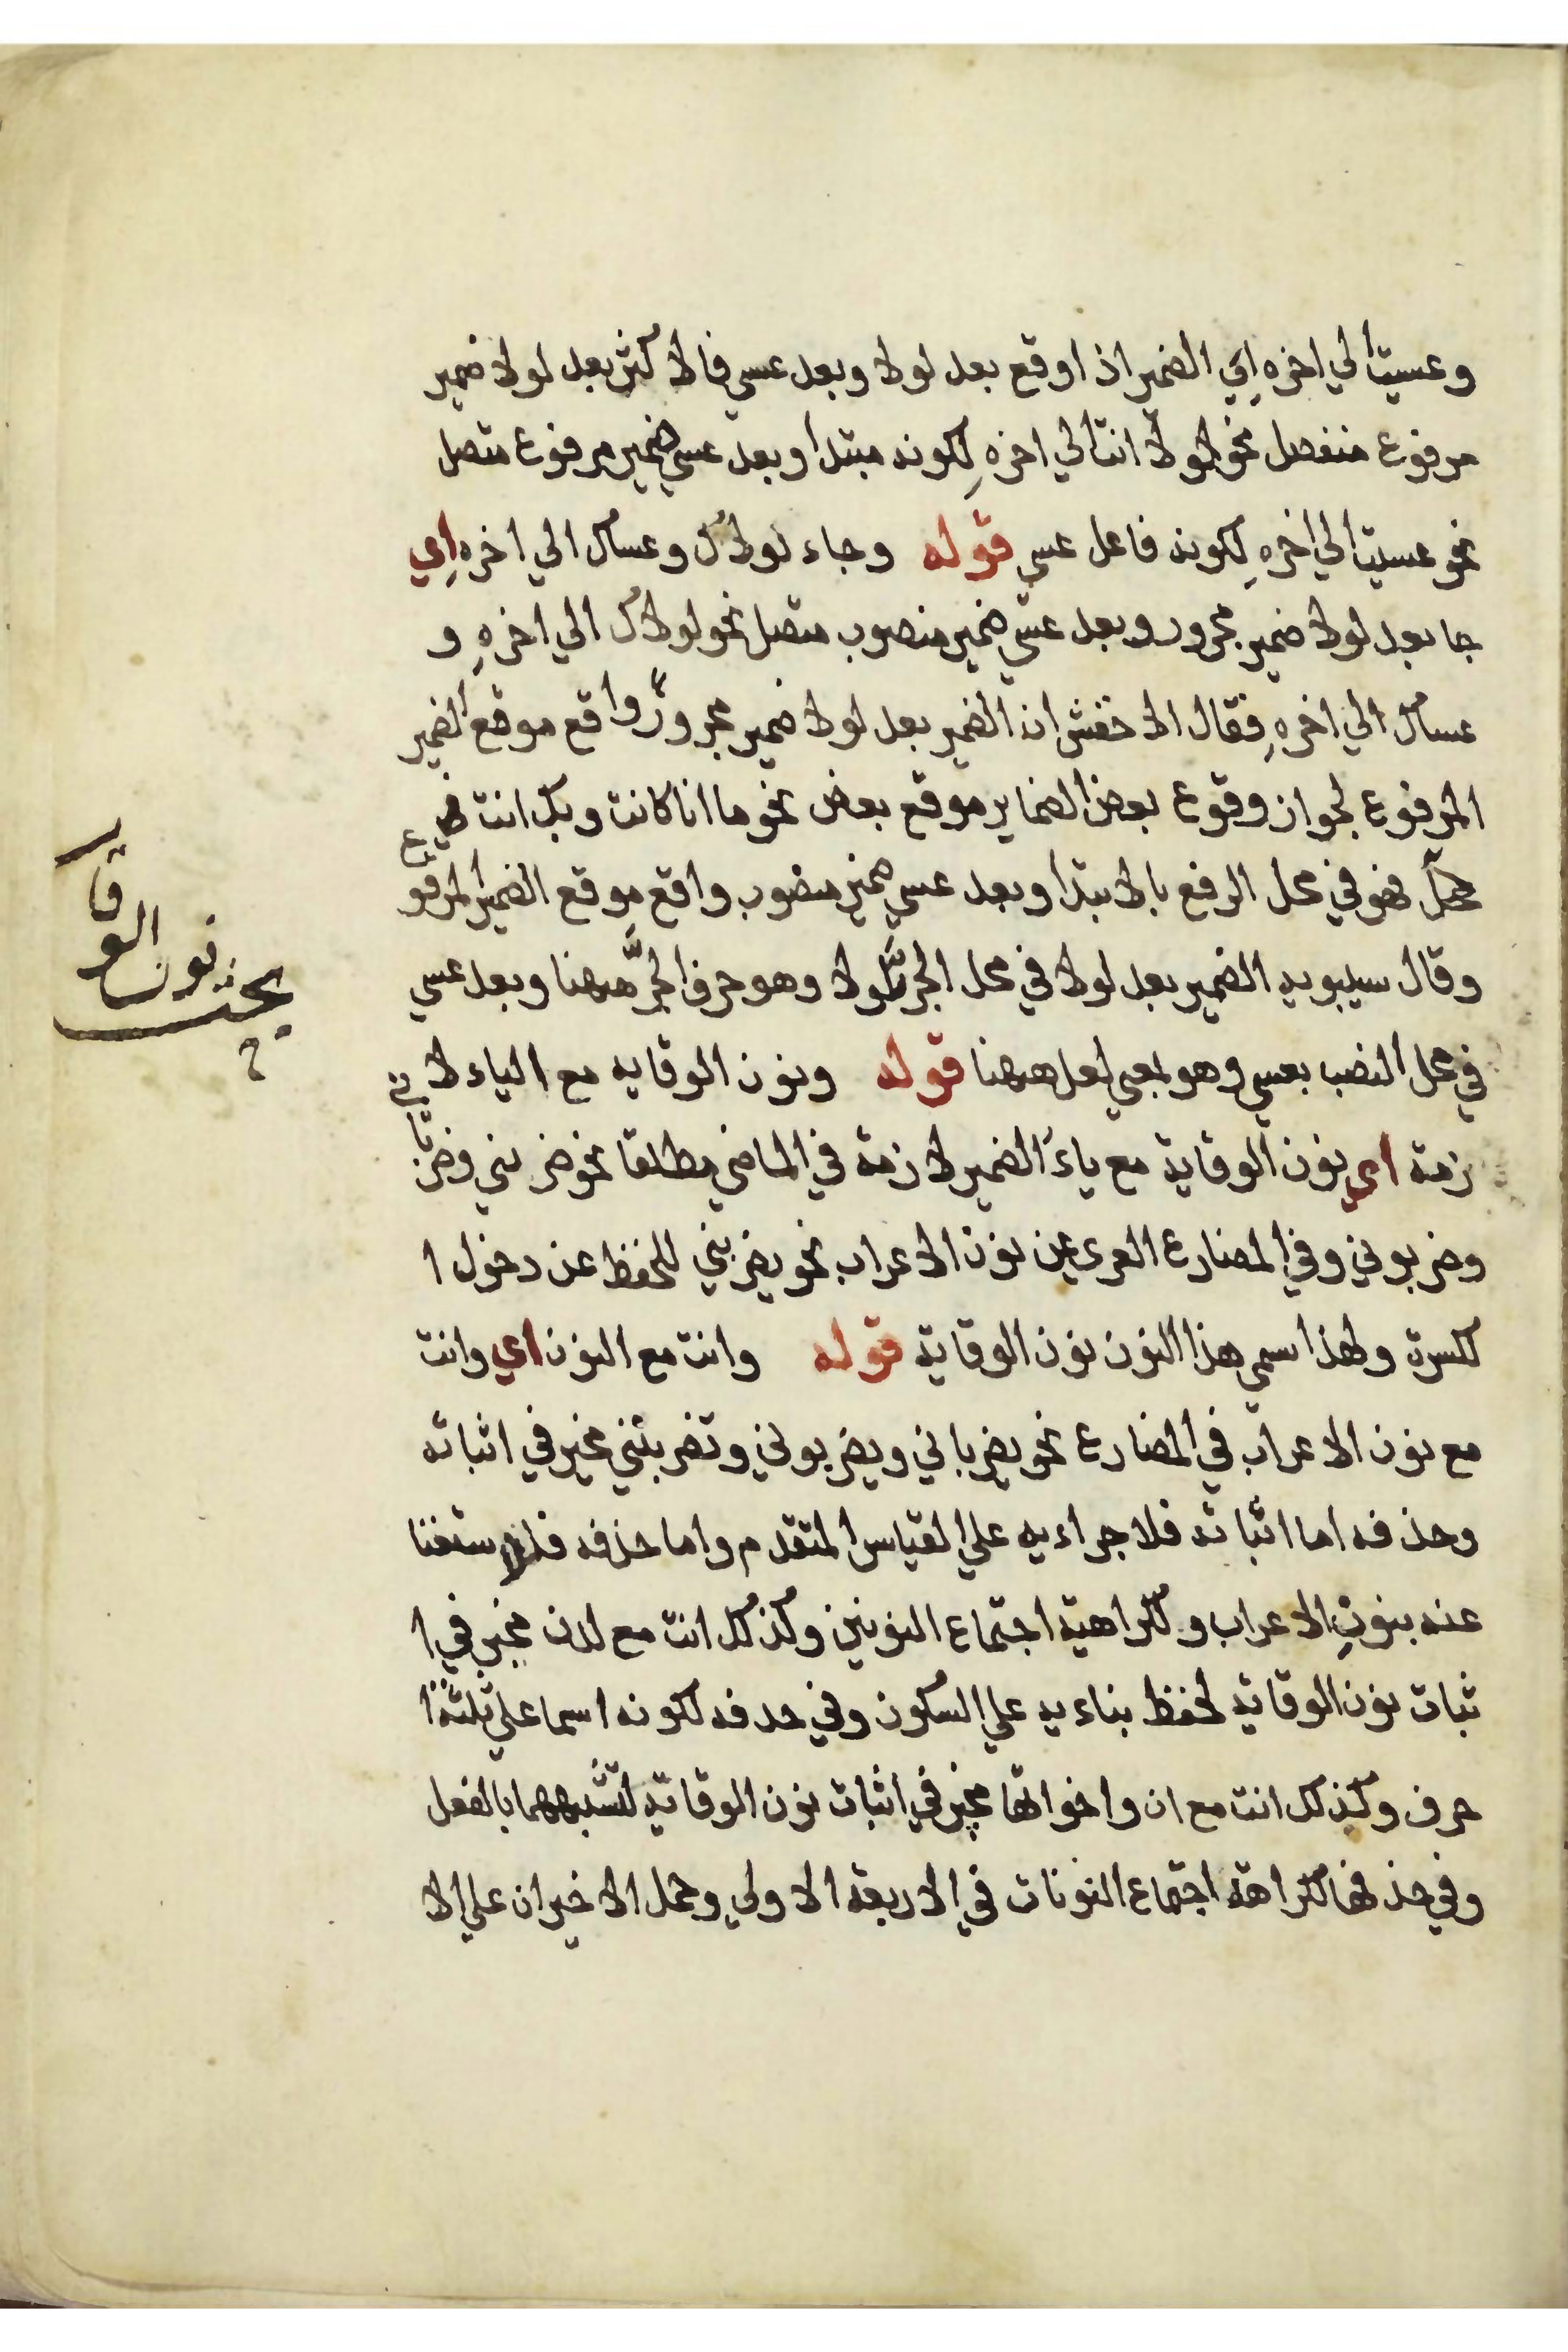 وعسيت الي اخره اي الضمير اذا وقع بعد لولا وبعد عسي فالاكثر بعد لولا ضمير
مرفوع منفصل نحو لولا انت الي اخره لكونه مبتدا وبعد عسي ضمير مرفوع متصل
نحو عسيت الي اخره لكونه فاعل عسي قوله وجاء لولاك وعساك الي اخره اي
جا بعد لولا ضمير مجرور وبعد عسي ضمير منصوب متصل نحو لولاك الي اخره و
عساك الي اخره فقال الاخفش ان الضمير بعد لولا ضمير مجرور واقع موقع الضمير
المرفوع لجواز وقوع بعض الضماير موقع بعض نحو ما انا كانت وبك انت
فهو في محل الرفع بالابتدا وبعد عسي ضمير منصوب واقع موقع الضمير المرفوع
وقال سيبويه الضمير بعد لولا في محل الجر بلولا وهو حرف الجر ههنا وبعد عسي
في محل النصب بعسي وهو بمعي لعل ههنا قوله ونون الوقايه مع الياء لا
زمة اي نون الوقاية مع ياء الضمير لازمة في الماضي مطلقا نحو ضربني وضرباني
وضربوني وفي المضارع العري عن نون الاعراب نحو يضربني للحفظ عن دخول ا
لكسرة ولهذا سمي هذا النون نون الوقاية قوله وانت مع النون اي وانت
مع نون الاعراب في المضارع نحو يضرباني ويضربوني وتضربيني مخير في اثباته
وحذفه اما اثباته فلاجراءيه علي القياس المتقدم واما حذفه فللاستغنا
عنه بنون الاعراب وكراهية اجتماع النونين وكذلك انت مع لدن مخير في ا
ثبات نون الوقاية لحفظ بناءيه علي السكون وفي حذفه لكونه اسما علي ثلثة ا
حرف وكذلك انت مع ان واخواتها مخير في اثبات نون الوقاية لتشبهها بالفعل
وفي حذفها لكراهة اجتماع النونات في الاربعة الاولي وحمل الاخيران علي الا
بحث نون الوقا